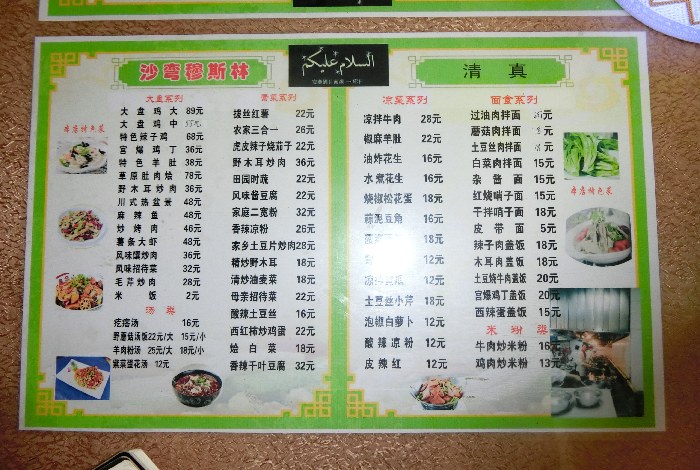 沙弯穆斯林
السلام عليكم
清真
大盘系列
大盘鸡大 89元
大盘鸡中
特色辣子鸡 68元
宫爆鸡丁 36元
特色羊肚 38元
草原肚肉烩 78元
野木耳炒肉 36元
川式热盆景 48元
麻辣鱼 48元
炒烤肉 46元
薯条大虾 48元
风味馕炒肉 36元
风味招待菜 32元
毛芹炒肉 28元
米饭 2元
汤类
疙瘩汤 16元
野蘑菇汤饭22元/大 15元/小
羊肉粉汤 25元/大 18元/小
紫菜蛋花汤 12元
本店特色菜
素菜系列
拔丝红薯 22元
农家三合一 26元
虎皮辣子烧茄子 22元
野木耳炒肉 36元
田园时蔬 22元
风味酱豆腐 22元
家庭二宽粉 32元
香辣凉粉 26元
家乡土豆片炒肉28元
精炒野木耳 18元
清炒油麦菜 18元
母亲招待菜 22元
酸辣土豆丝 16元
西红柿炒鸡蛋 22元
烩白菜 18元
香辣千叶豆腐 32元
凉菜系列
凉拌牛肉 28元
椒麻羊肚 22元
油炸花生 16元
水煮花生 16元
烧椒松花蛋 18元
蒜泥豆角 16元
18元
18元
凉拌黄瓜 12元
土豆丝小芹 18元
泡椒白萝卜 12元
酸辣凉粉 12元
皮辣红 12元
面食系列
过油肉拌面
蘑菇肉拌面
土豆丝肉拌面
白菜肉拌面 15元
杂酱面 15元
红烧哨子面 15元
干拌哨子面 18元
皮带面 5元
辣子肉盖饭 18元
木耳肉盖饭 18元
土豆烧牛肉盖饭 20元
宫爆鸡丁盖饭 20元
西辣蛋盖饭 15元
米粉类
牛肉炒米粉 16元
鸡肉炒米粉 13元
本店特色菜